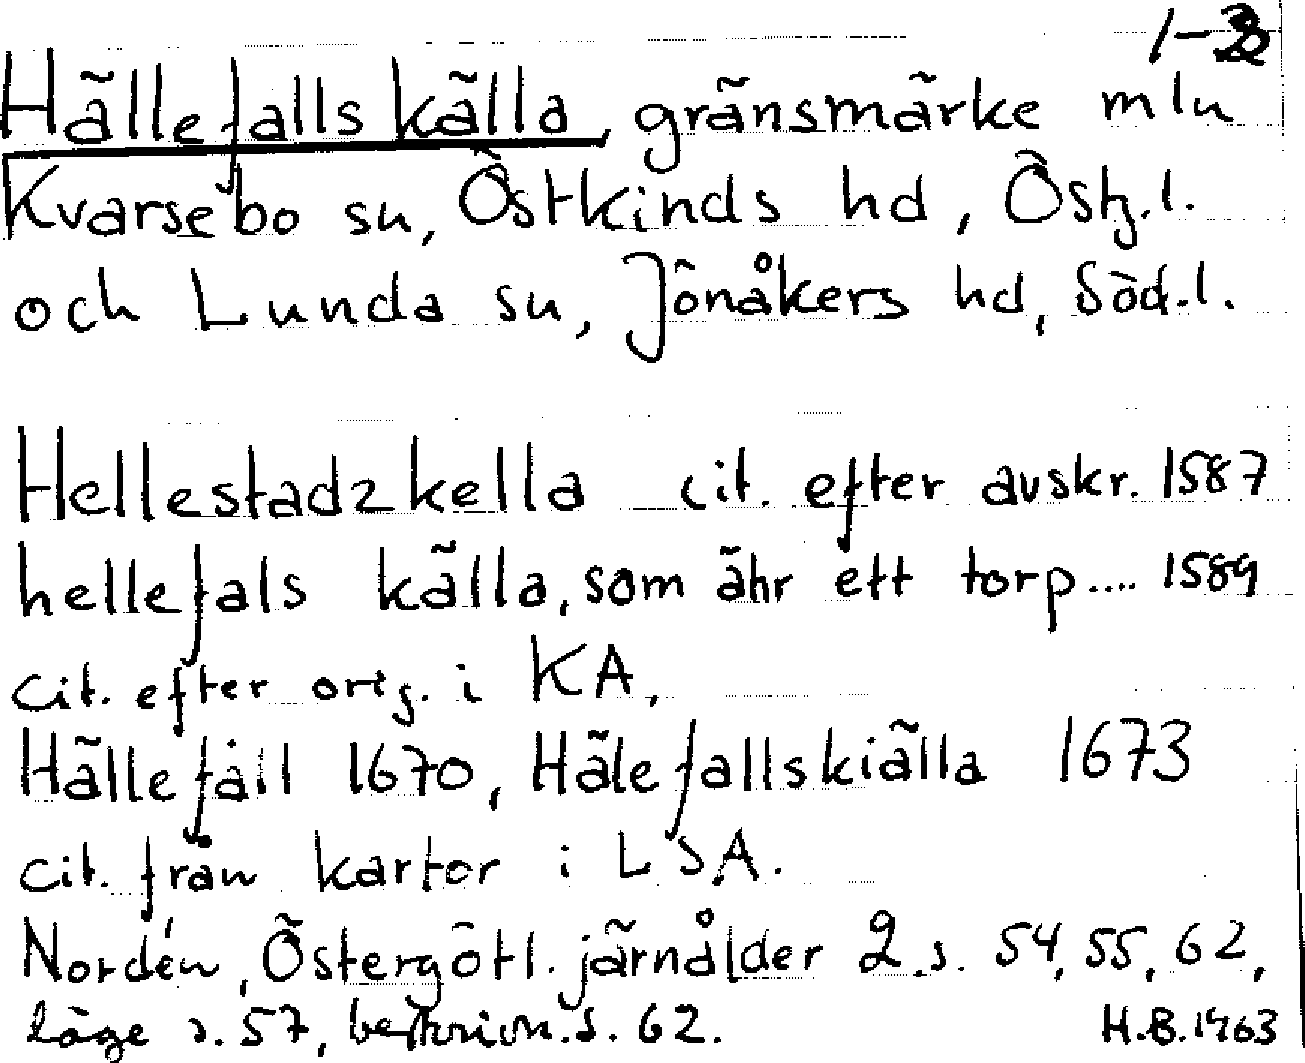 1-3
Hällefalls källa, gränsmärke mln
Kvarsebo sn, Östkinds hd, Östg.l.
och Lunda sn, Jönåkers hd, Söd.l.
Hellestadzkella cit. efter avskr. 1587
hellefals källa, som ähr ett torp.... 1589
cit. efter orig. i KA,
Hällefall 1670, Hälefallskiälla 1673
cit. från kartor i LSA.
Nordén, Östergötl. järnålder 2 s. 54, 55, 62,
läge s. 57, beskrivn. s. 62. H.B. 1963